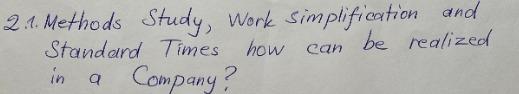 2.1. Methods Study, Work Simplification and
Standard Times how can be realized
in a Company?